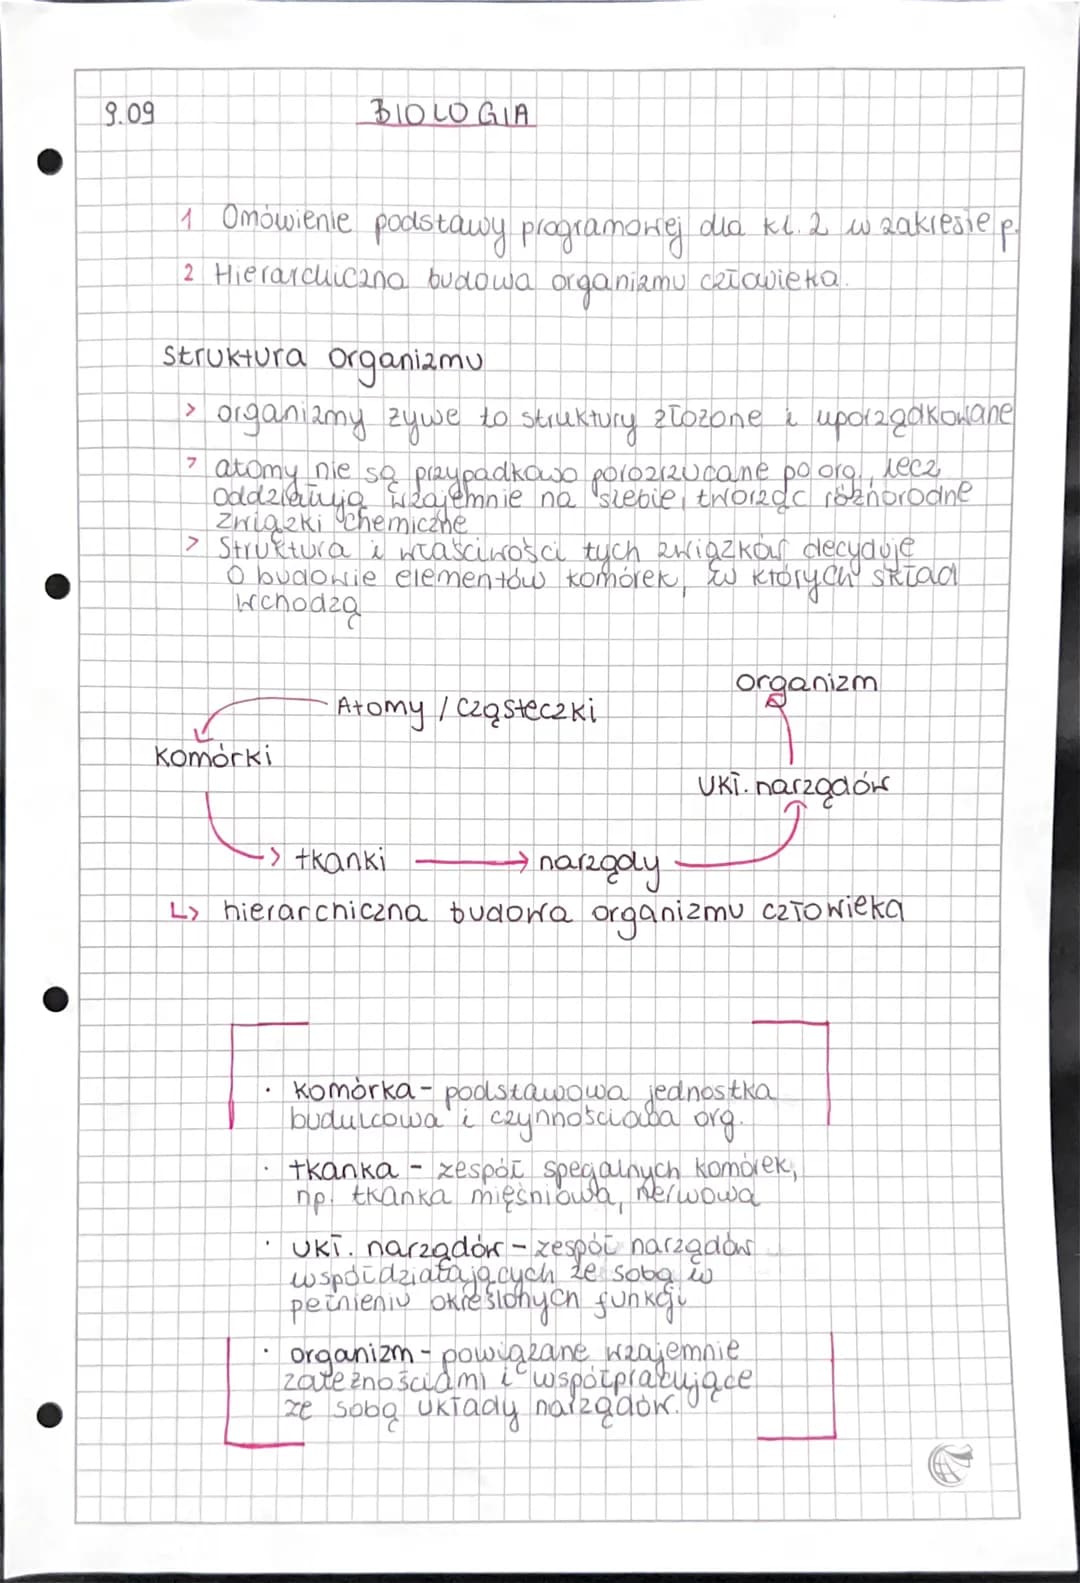 9.09
BIOLOGIA
1 Omówienie podstawy programowej dla kl. 2 w zakresie p.
2 Hierarchiczna budowa organizmu człowieka.
struktura organizmu
> organizmy żywe to struktury złożone i uporządkowane
> atomy nie są przypadkowo porozrzucane po org., lecz
oddziałują wzajemnie na siebie, tworząc różnorodne
związki chemiczne
> struktura i właściwości tych związków decyduje
o budowie elementów komórek, w których skład
wchodzą
organizm
Atomy / cząsteczki
komórki
ukł. narządów
tkanki
narządy
hierarchiczna budowa organizmu człowieka
· komórka - podstawowa jednostka
budulcowa i czynnościowa org.
· tkanka - zespół specjalnych komórek,
np. tkanka mięśniowa, nerwowa
· ukł. narządów - zespół narządów
współdziałających ze sobą w
pełnieniu określonych funkcji
· organizm - powiązane wzajemnie
zależnościami i współpracujące
ze sobą układy narządów.